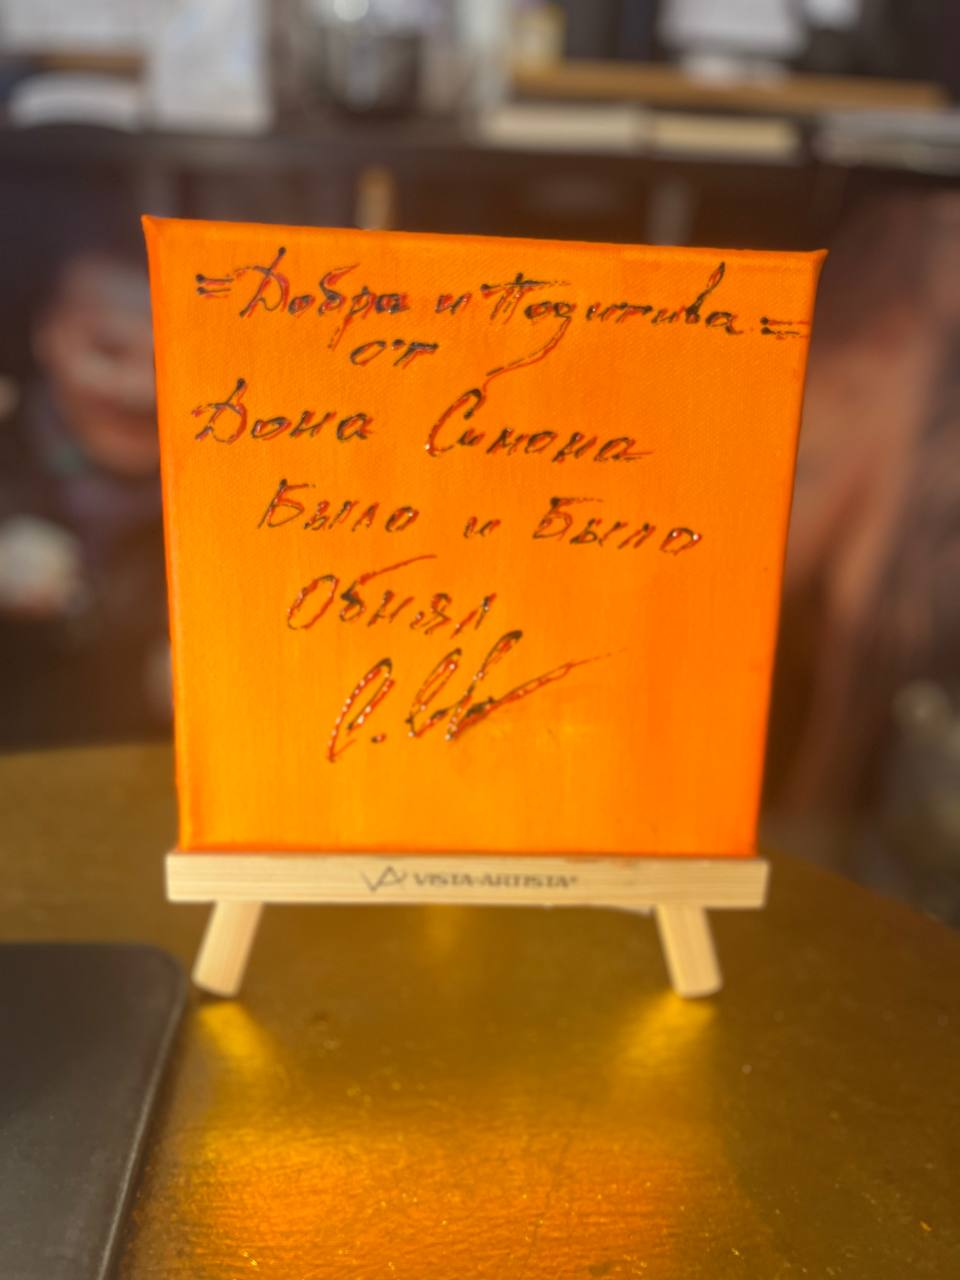 =Добра и Позитива=
от
Дона Симона
Было и Было
Обнял
VISTA-ARTISTA